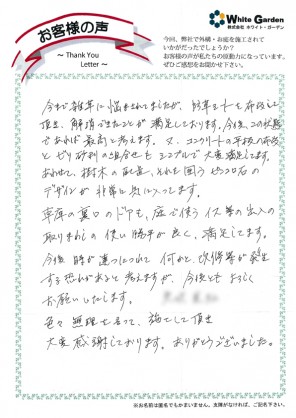 お客様の声
～ Thank You
Letter ～
White Garden
株式会社 ホワイト・ガーデン
今回、弊社で外構・お庭を施工されて
いかがだったでしょうか？
お客様の声が私たちの原動力になっています。
ぜひご感想をお聞かせ下さい。
今まで雑草に悩まされてましたが、防草シートを布設して
頂き、解消できたことが満足しております。今後、この状態
であれば最高と考えます。又、コンクリートの平板の布設
と砂利の組合せもシンプルで大変満足してます。
あわせて、樹木の配置、それを囲うピンコロ石の
デザインが非常に気に入ってます。
車庫の裏口のドアも、庭で使うイス等の出入の
取りまわしの使い勝手が良く、満足してます。
今後、時が過つにつれて何かと、改修等が発生
する恐れがあると考えますが、今後とも よろしく
お願いします。
色々無理を言って、施工して頂き
大変感謝しております。ありがとうございました。
※お名前は匿名でもかまいません。支障がなければ、ご記名下さい。